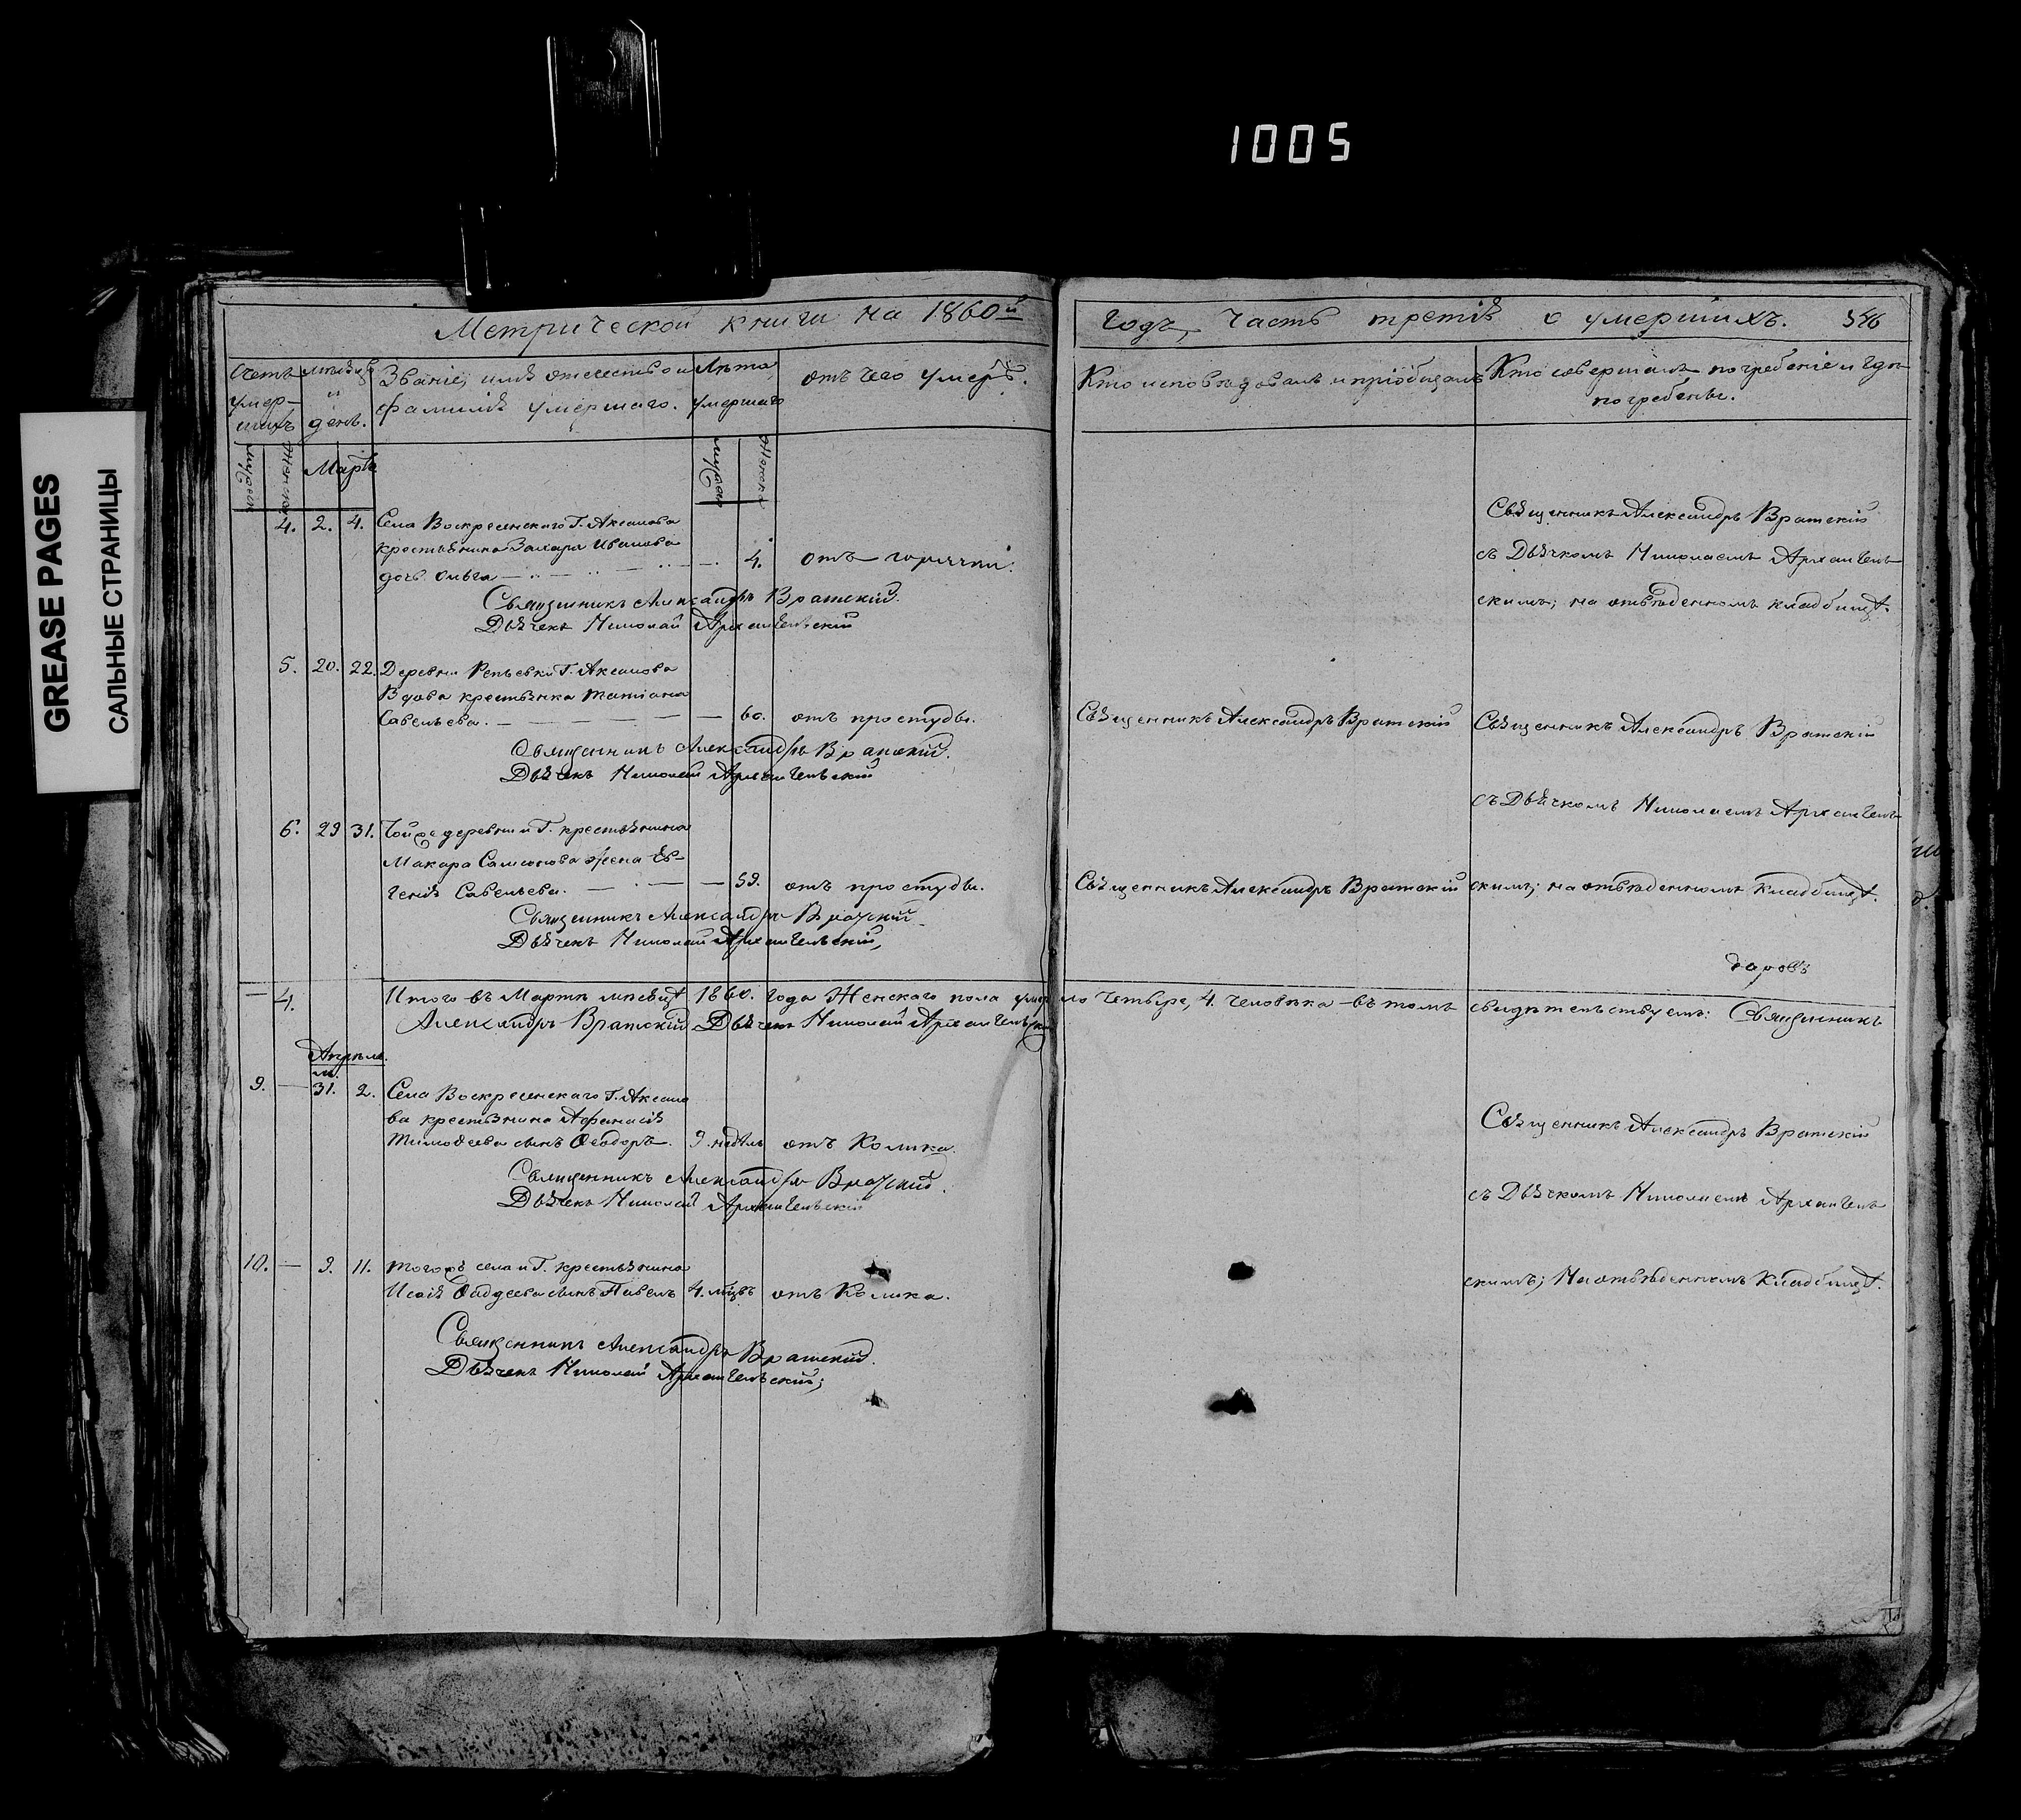 1005
GREASE PAGES
САЛЬНЫЕ СТРАНИЦЫ
Метрической книги на 1860й
годъ, часть третія о умершихъ. 546
Счетъ умер-шихъ
мѣсяцъ и день.
Званіе, имя отечество и фамилія умершаго.
Лѣта умершаго
отъ чего умеръ.
Кто исповѣдовалъ и пріобщалъ
Кто совершалъ погребеніе и гдѣ погребены.
Мартъ
4. 2. 4. Села Воскресенскаго Г. Аксакова
крестьянина Захара Иванова
дочь Ольга 4. отъ горячки.
Священникъ Александръ Вратскій.
Дьячекъ Николай Архангельскій
Священникъ Александръ Вратскій
съ Дьячкомъ Николаемъ Архангель-
скимъ; на отведенномъ кладбищѣ.
5. 20. 22. Деревни Репьевки Г. Аксакова
Вдова крестьянка Татіана
Савельева. 60. отъ простуды.
Священникъ Александръ Вратскій
Священникъ Александръ Вратскій
Священникъ Александръ Вратскій.
Дьячекъ Николай Архангельскій
съ Дьячкомъ Николаемъ Архангель-
6. 29 31. Тойже деревни и Г. крестьянина
Макара Самсонова жена Ев-
генія Савельева. 59. отъ простуды.
Священникъ Александръ Вратскій
скимъ; на отведенномъ кладбищѣ.
Священникъ Александръ Вратскій
Дьячекъ Николай Архангельскій,
4. Итого въ Мартѣ мѣсяцѣ 1860. года Женскаго пола умерло четыре, 4. человѣка въ томъ свидѣтельствуемъ: Священникъ
Александръ Вратскій Дьячекъ Николай Архангельскій
Апрѣль.
9. — 31. 2. Села Воскресенскаго Г. Аксако
ва крестьянина Афанасія
Тимоѳеева сынъ Ѳеодоръ. 9. недѣль отъ Колика.
Священникъ Александръ Вратскій.
Дьячекъ Николай Архангельскій
Священникъ Александръ Вратскій
съ Дьячкомъ Николаемъ Архангель
скимъ; На отведенномъ Кладбищѣ.
10. — 9. 11. Тогожъ села и Г. крестьянина
Исаія сынъ Павелъ 4. мцвъ отъ Колика.
Священникъ Александръ Вратскій.
Дьячекъ Николай Архангельскій;